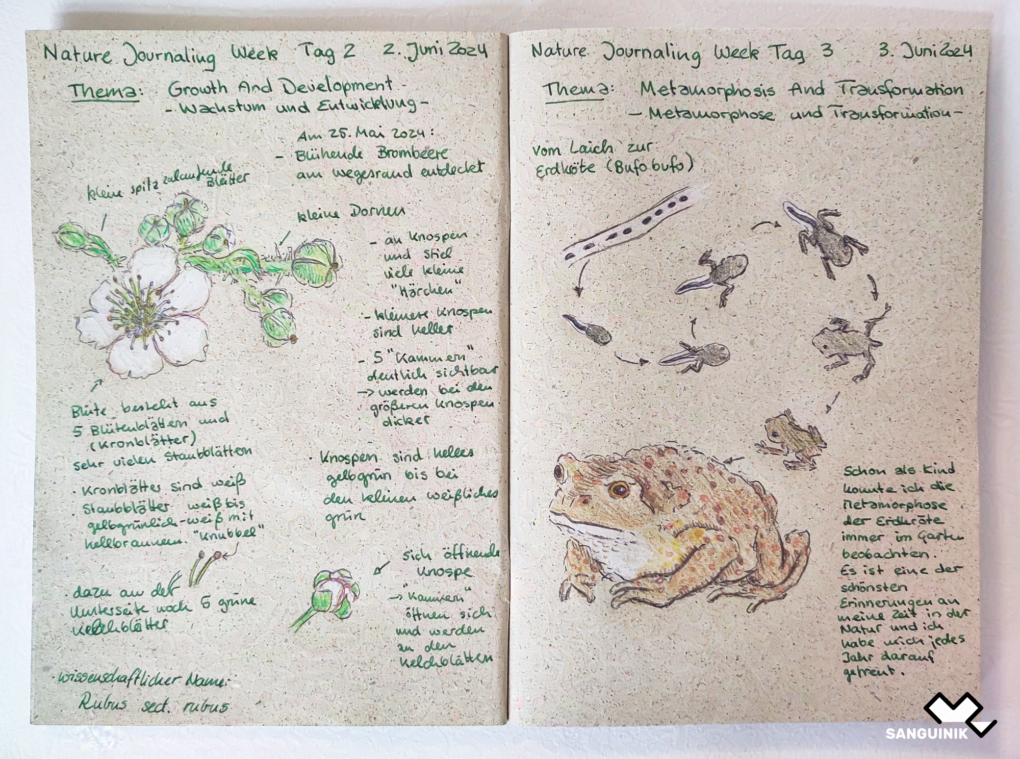 Nature Journaling Week Tag 2 2. Juni 2024
Thema: Growth And Development
- Wachstum und Entwicklung -
Am 25. Mai 2024:
- Blühende Brombeere
am Wegesrand entdeckt
kleine spitz zulaufende
Blätter
kleine Dornen
- an Knospen
und Stiel
viele kleine
"Härchen"
- kleinere Knospen
sind heller
- 5 "Kammern"
deutlich sichtbar
→ werden bei den
größeren Knospen
dicker
Blüte besteht aus
5 Blütenblättern und
(Kronblätter)
sehr vielen Staubblättern
· Kronblätter sind weiß
Staubblätter weiß bis
gelbgrünlich-weiß mit
hellbraunem "Knubbel"
· dazu an der
Unterseite noch 5 grüne
Kelchblätter
· Knospen sind helles
gelbgrün bis bei
den kleinen weißliches
grün
· sich öffnende
Knospe
→ "Kammern"
öffnen sich
und werden
zu den
Kelchblättern
· wissenschaftlicher Name:
Rubus sect. rubus
Nature Journaling Week Tag 3 3. Juni 2024
Thema: Metamorphosis And Transformation
- Metamorphose und Transformation -
vom Laich zur
Erdkröte (Bufo bufo)
Schon als Kind
konnte ich die
Metamorphose
der Erdkröte
immer im Garten
beobachten.
Es ist eine der
schönsten
Erinnerungen an
meine Zeit in der
Natur und ich
habe mich jedes
Jahr darauf
gefreut.
SANGUINIK